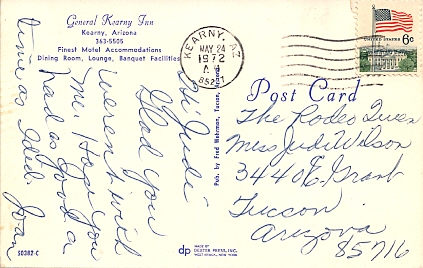 General Kearny Inn
Kearny, Arizona
363-5505
Finest Motel Accommodations
Dining Room, Lounge, Banquet Facilities
KEARNY, AZ
MAY 24
1972
85237
UNITED STATES
6c
Post Card
Pub. by Fred Wehrman, Tucson, Arizona
Hi Judi
Glad you
weren't with
me. Hope you
had as good a
time as I did. Joan
The Rodeo Queen
Miss Judi Wilson
3440 E. Grant
Tuccon,
Arizona
85716
50382-C
dp
MADE BY
DEXTER PRESS, INC.
WEST NYACK, NEW YORK